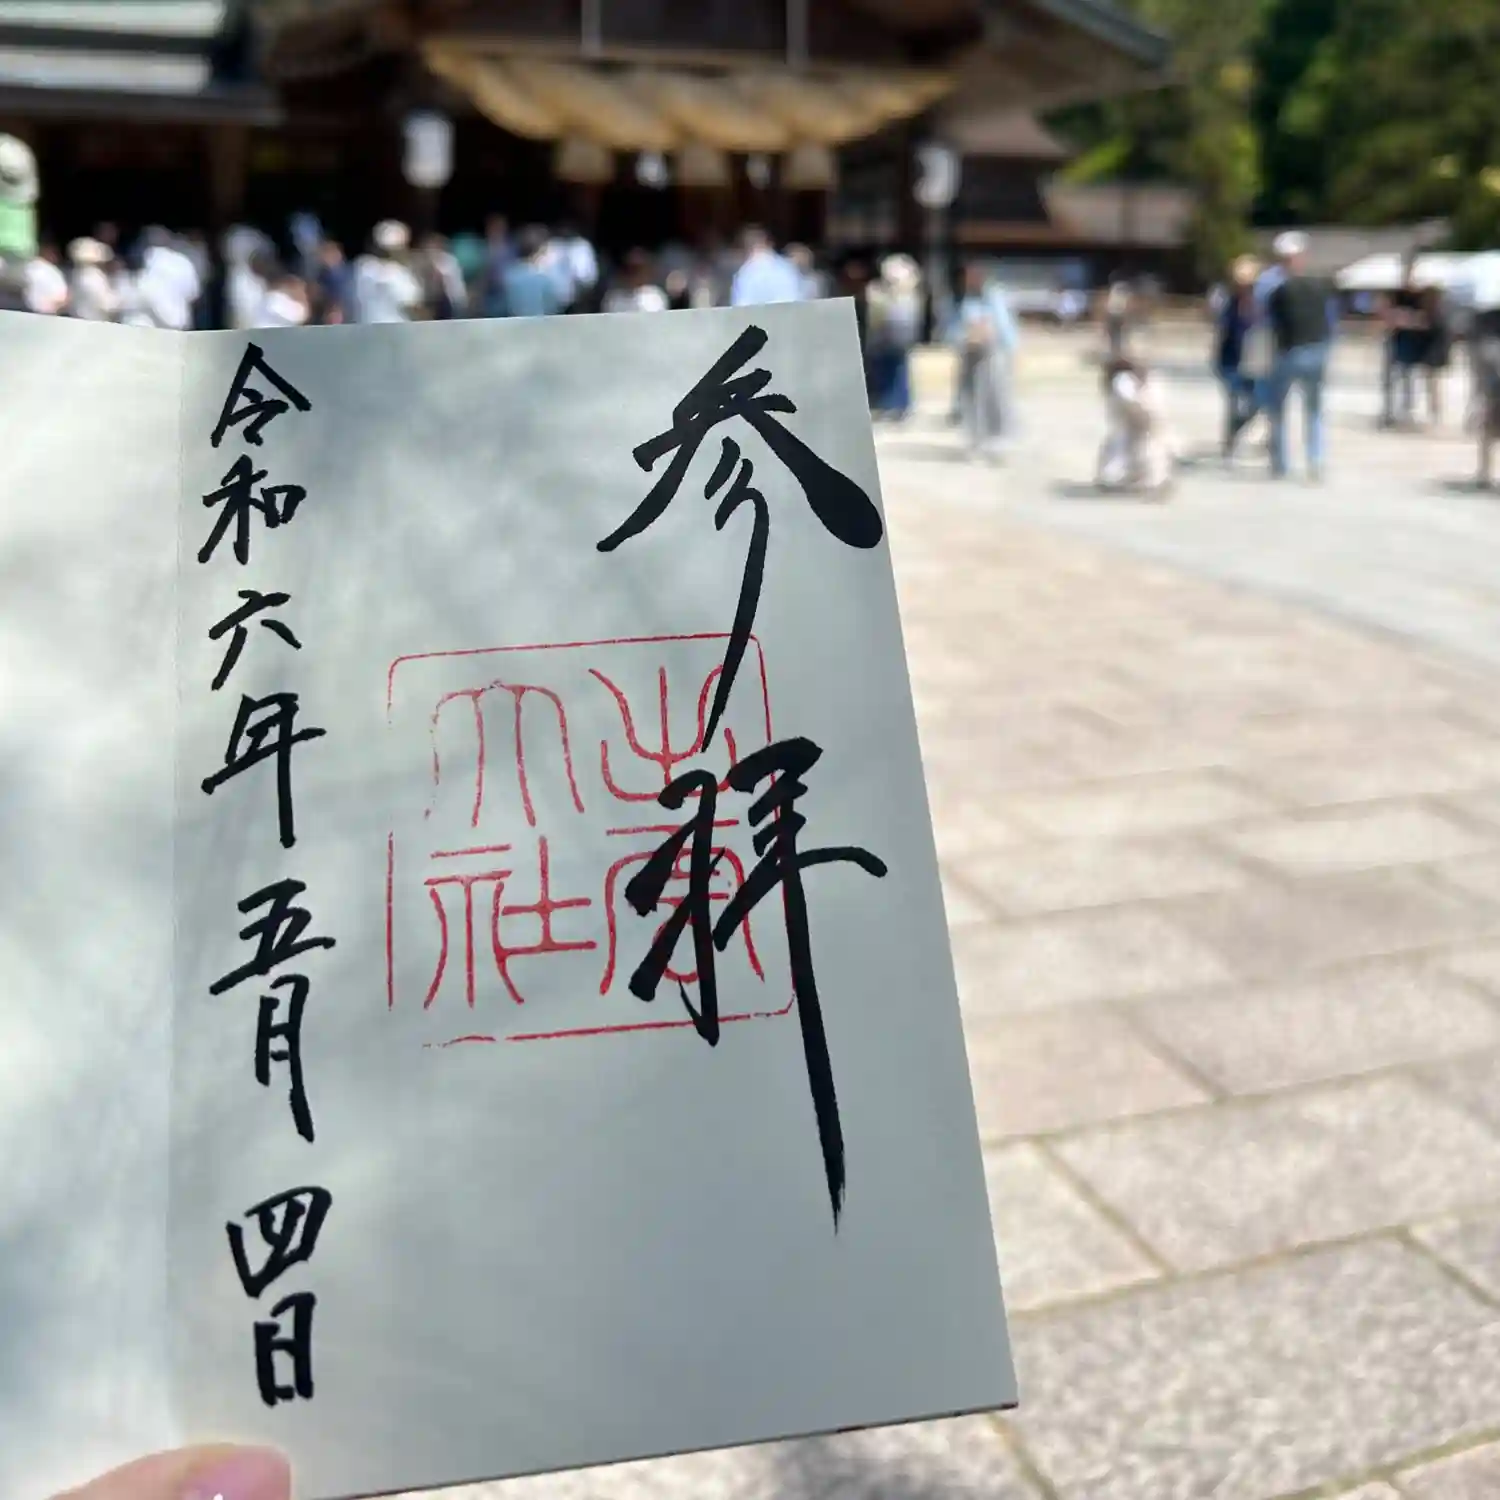 参拝
出雲
大社
令和六年五月四日